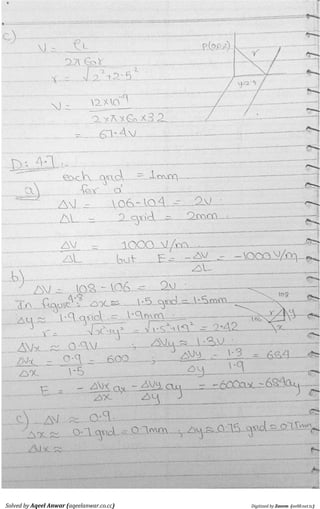 c)
V = ρL
2πε₀r
r = √2²+2.5²
P(0,0,2)
r
y=2.5
V = 12x10⁻⁹
2xπxε₀x3.2
= 67.4V
D: 4.7:
each grid = 1mm
a) for 'a'
ΔV = 106-104 = 2V
ΔL = 2 grid = 2mm
ΔV/ΔL = 1000 V/m
but E = -ΔV/ΔL = -1000 V/m
b)
ΔV = 108-106 = 2V
In figure 4.8 Δx ≈ 1.5 grid = 1.5mm
108
Δy ≈ 1.9 grid = 1.9mm
106 r y
x
r = √x²+y² = √1.5²+1.9² = 2.42
ΔVx ≈ 0.9V ; ΔVy ≈ 1.3V
ΔVx/Δx = 0.9/1.5 = 600 ; ΔVy/Δy = 1.3/1.9 = 684
E = -ΔVx/Δx ax - ΔVy/Δy ay = -600ax-684ay
c) ΔV ≈ 0.9
Δx ≈ 0.7 grid = 0.7mm ; Δy ≈ 0.75 grid = 0.75mm
ΔVx ≈
Solved by Aqeel Anwar (aqeelanwar.co.cc)
Digitized by Zaeem